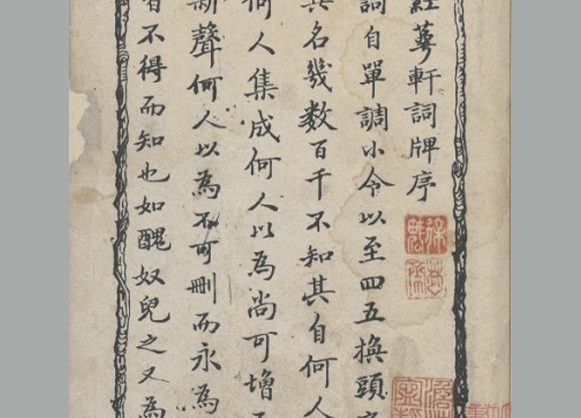 紅萼軒詞牌序
詞自單調小令以至四五換頭
其名幾数百千不知其自何人
何人集成何人以為尚可增
新聲何人以為不可刪而永為
者不得而知也如醜奴兒之又為